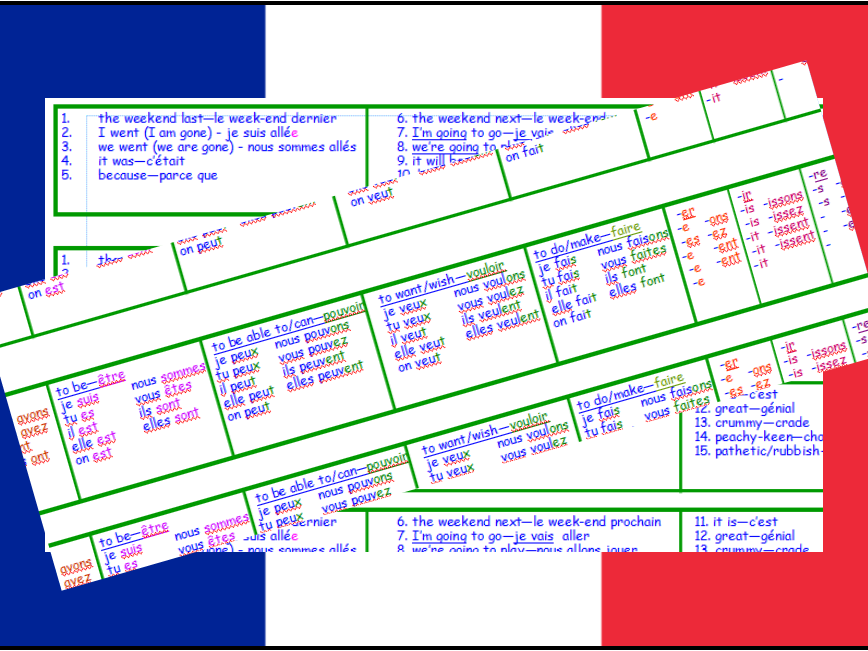 1. the weekend last—le week-end dernier
2. I went (I am gone) - je suis allée
3. we went (we are gone) - nous sommes allés
4. it was—c'était
5. because—parce que
6. the weekend next—le week-end
7. I'm going to go—je vais
8. we're going to
9. it will be
10.
1. the
on est
on peut
on veut
on fait
-e
-it
-
avons
avez
ont
to be—être
je suis
tu es
il est
elle est
on est
nous sommes
vous êtes
ils sont
elles sont
to be able to/can—pouvoir
je peux
tu peux
il peut
elle peut
on peut
nous pouvons
vous pouvez
ils peuvent
elles peuvent
to want/wish—vouloir
je veux
tu veux
il veut
elle veut
on veut
nous voulons
vous voulez
ils veulent
elles veulent
to do/make—faire
je fais
tu fais
il fait
elle fait
on fait
nous faisons
vous faites
ils font
elles font
-er
-e -ons
-es -ez
-e -ent
-e -ent
-e
-ir
-is -issons
-is -issez
-it -issent
-it -issent
-it
-re
-s
-s
-
-
-
avons
avez
to be—être
je suis
tu es
nous sommes
vous êtes
to be able to/can—pouvoir
je peux
tu peux
nous pouvons
vous pouvez
to want/wish—vouloir
je veux
tu veux
nous voulons
vous voulez
to do/make—faire
je fais
tu fais
nous faisons
vous faites
-er
-e -ons
-es -ez
-ir
-is -issons
-is -issez
-re
-s
c'est
12. great—génial
13. crummy—crade
14. peachy-keen—cho
15. pathetic/rubbish-
dernier
suis allée
gone) - nous sommes allés
6. the weekend next—le week-end prochain
7. I'm going to go—je vais aller
8. we're going to play—nous allons jouer
11. it is—c'est
12. great—génial
13. crummy—crade